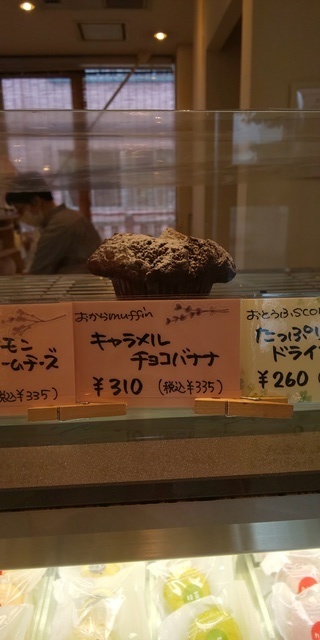 モン
ームチーズ
税込¥335)
おからmuffin
キャラメル
チョコバナナ
¥310 (税込¥335)
おとうふSCO
たっぷり
ドライ
¥260